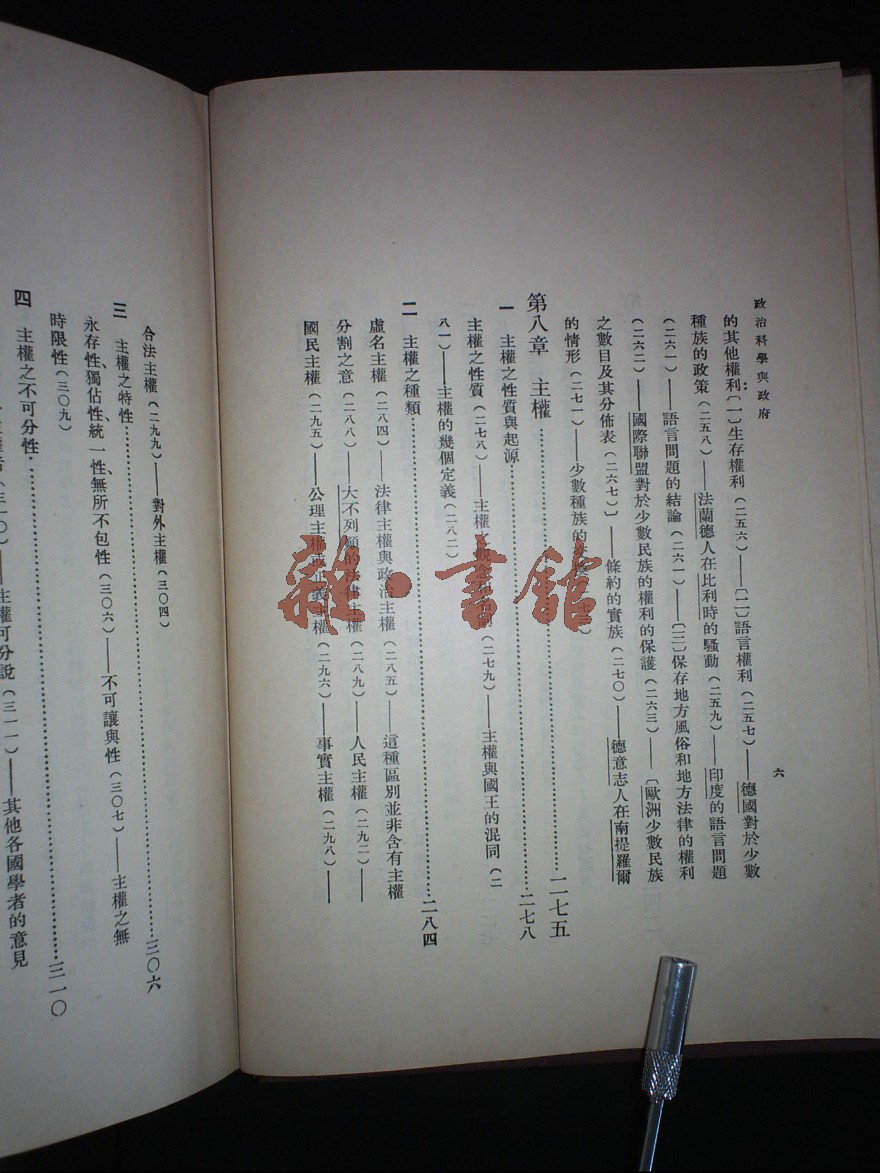 政治科學與政府
六
的其他權利:〔一〕生存權利(二五六)——〔二〕語言權利(二五七)——德國對於少數
種族的政策(二五八)——法蘭德人在比利時的騷動(二五九)——印度的語言問題
(二六一)——語言問題的結論(二六一)——〔三〕保存地方風俗和地方法律的權利
(二六二)——國際聯盟對於少數民族的權利的保護(二六三)——〔歐洲少數民族
之數目及其分佈表(二六七)〕——條約的實族(二七〇)——德意志人在南提羅爾
的情形(二七一)——少數種族的
第八章 主權……二七五
一 主權之性質與起源……二七八
主權之性質(二七八)——主權之(二七九)——主權與國王的混同(二
八一)——主權的幾個定義(二八二)
二 主權之種類……二八四
虛名主權(二八四)——法律主權與政治主權(二八五)——這種區別並非含有主權
分割之意(二八八)——大不列顛的法律主權(二八九)——人民主權(二九二)——
國民主權(二九五)——公理主權或正義主權(二九六)——事實主權(二九八)——
合法主權(二九九)——對外主權(三〇四)
三 主權之特性……三〇六
永存性、獨佔性、統一性、無所不包性(三〇六)——不可讓與性(三〇七)——主權之無
時限性(三〇九)
四 主權之不可分性……三一〇
(三一〇)——主權可分說(三一一)——其他各國學者的意見
雜·書館